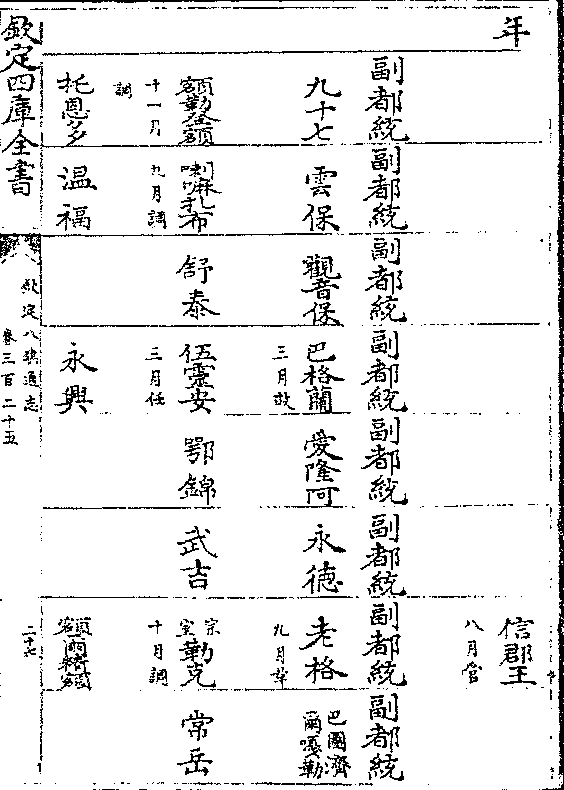 年
信郡王
八月管
副都統
九十七
額勒登額
十一月
調
托恩多
副都統
雲保
喇嘛扎布
九月調
溫福
副都統
觀音保
舒泰
副都統
巴格蘭
三月故
伍靈安
三月任
永興
副都統
愛隆阿
鄂錦
副都統
永德
武吉
副都統
老格
九月革
宗室勒克
十月調
額爾精額
副都統
巴圖濟爾嘎勒
常岳
欽定四庫全書
欽定八旗通志
卷三百二十五
二十七